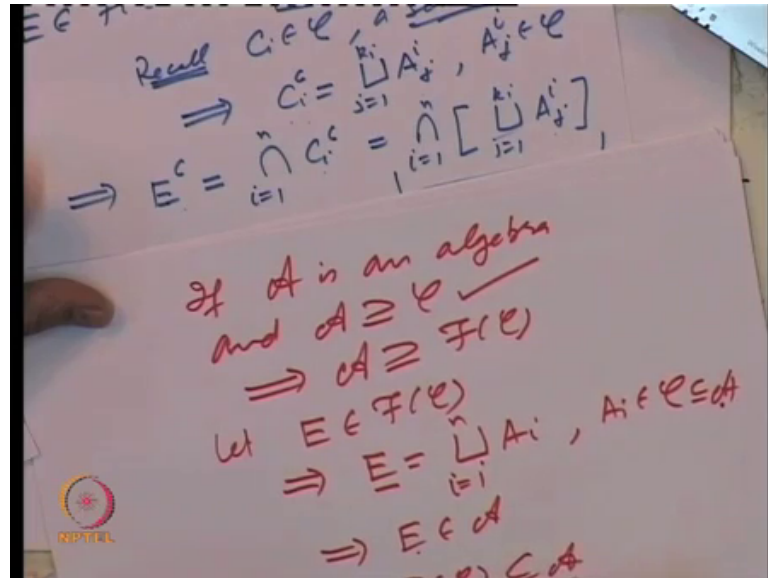 E ∈
Recall C_i ∈ 𝒞, a
⟹ C_i^c = ⊔_{j=1}^{k_i} A_j^i , A_j^i ∈ 𝒞
⟹ E^c = ⋂_{i=1}^{n} C_i^c = ⋂_{i=1}^{n} [ ⊔_{j=1}^{k_i} A_j^i ] ,
If A is an algebra
and A ⊇ 𝒞 ✓
⟹ A ⊇ F(𝒞)
Let E ∈ F(𝒞)
⟹ E = ⊔_{i=1}^{n} A_i , A_i ∈ 𝒞 ⊆ A
⟹ E ∈ A
⊆ A
NPTEL